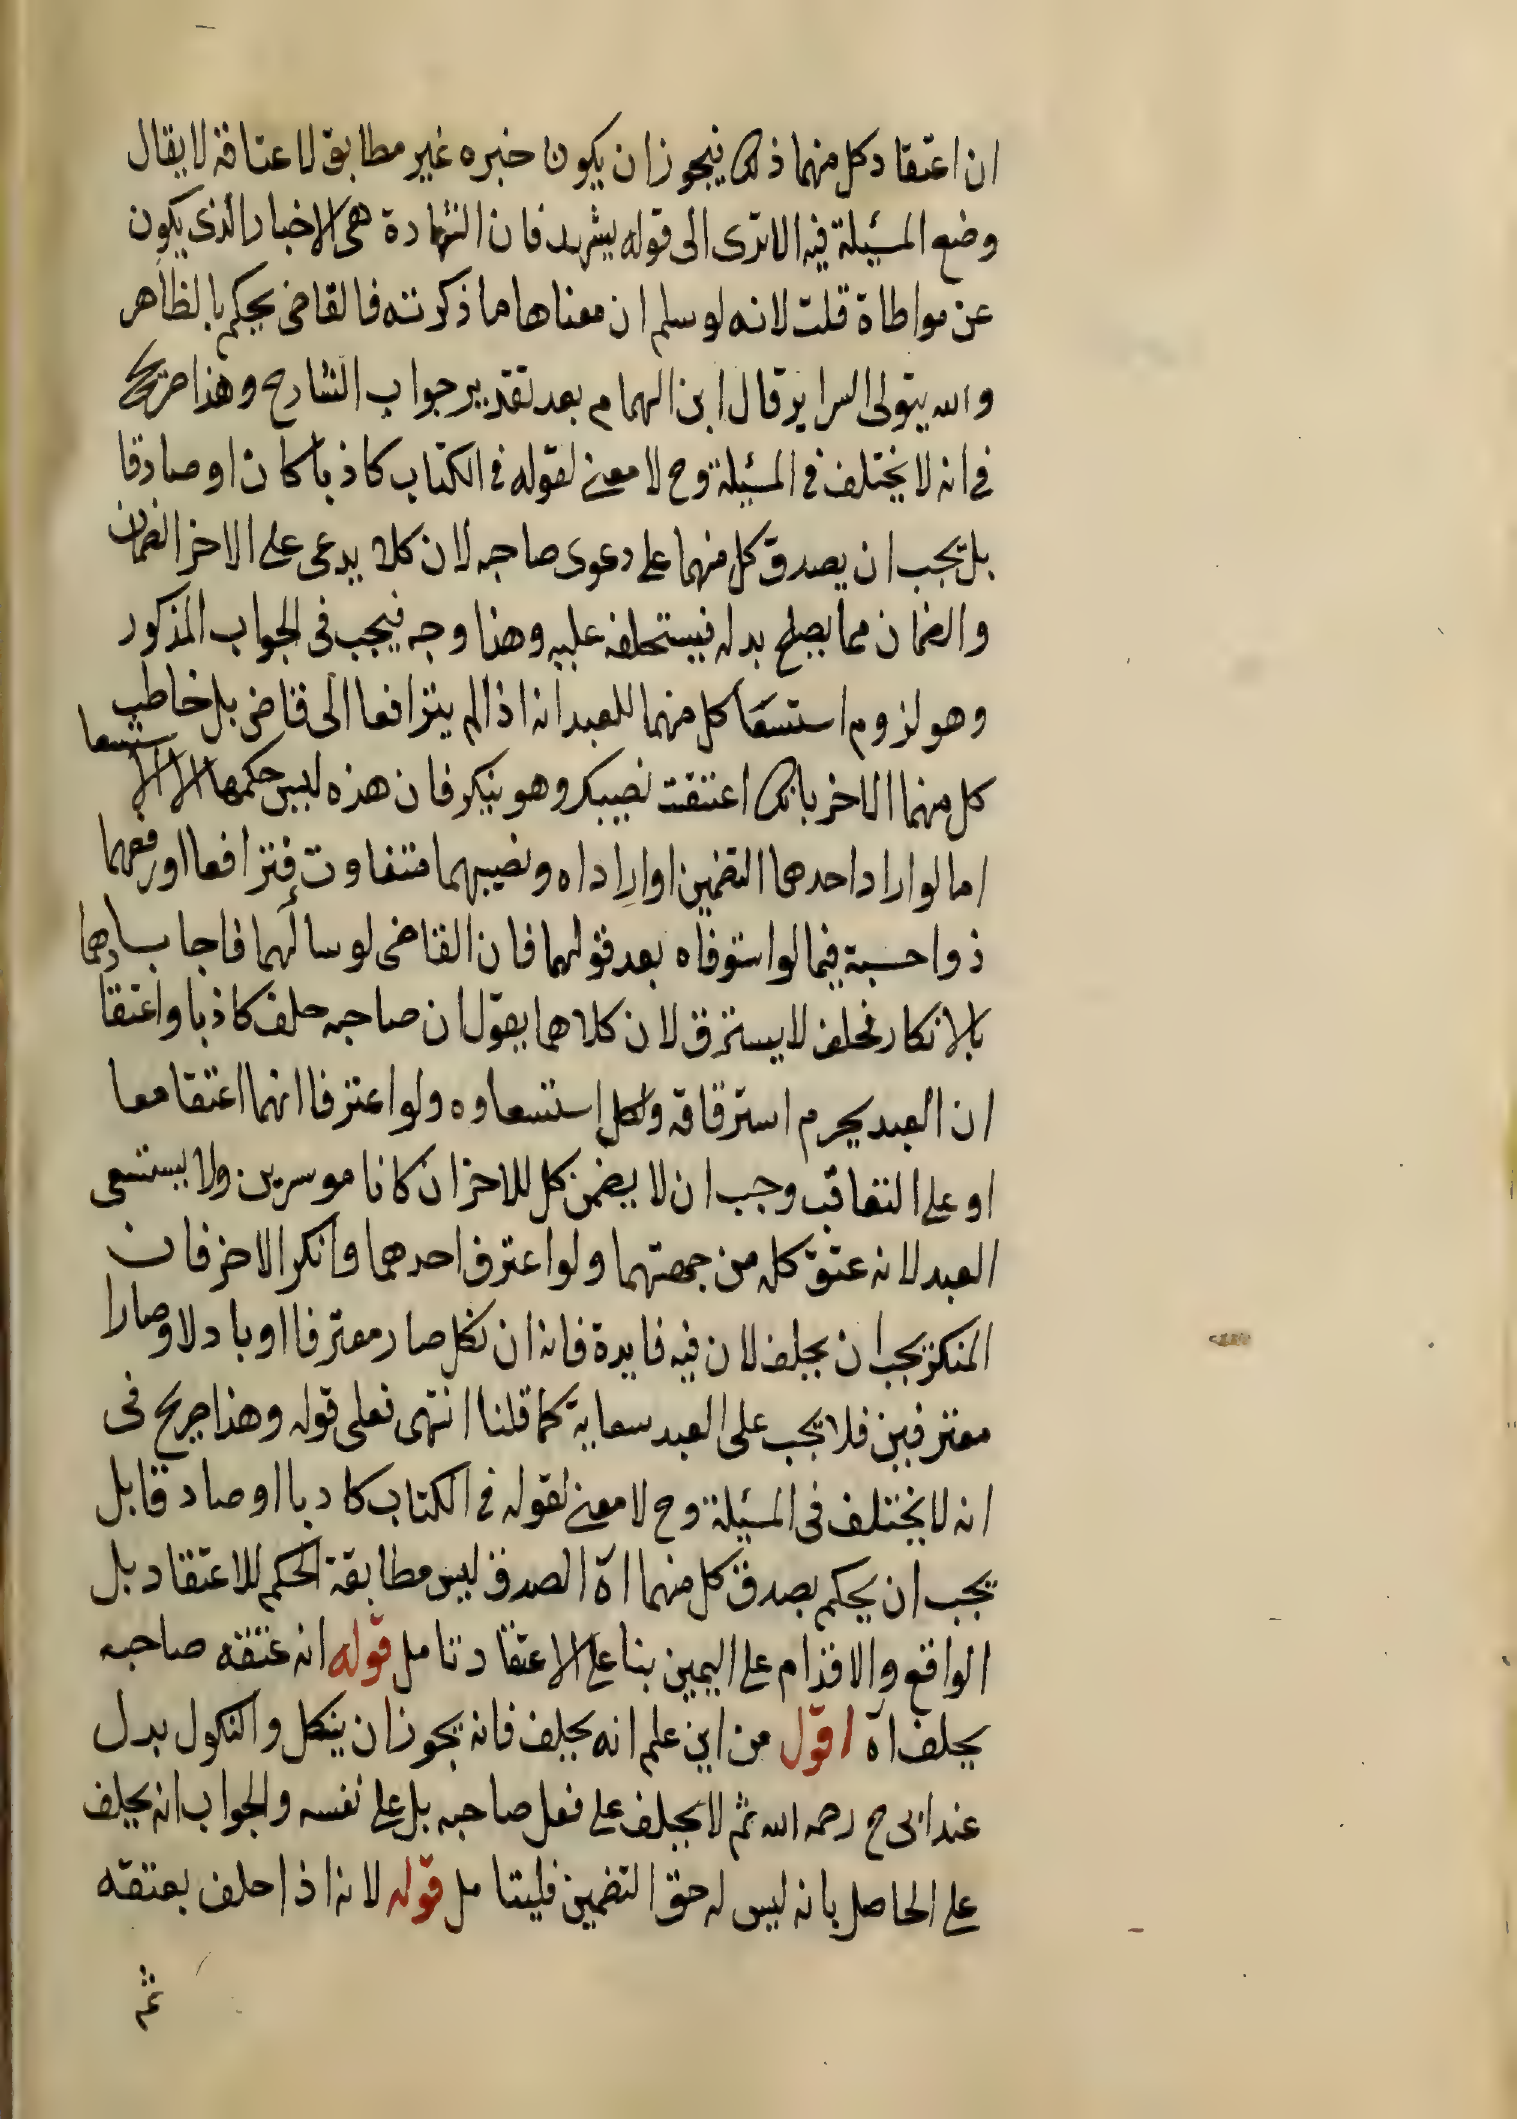 ان اعتقاد كل منهما ذلك فيجوز ان يكون خبره غير مطابق لاعتاقه لا يقال
وضع المسئلة فيه الا ترى الى قوله يشهد فان الشهادة هى الاخبار الذى يكون
عن مواطاة قلت لانه لو سلم ان معناها ما ذكرته فالقاضى يحكم بالظاهر
والله يتولى السراير قال ابن الهمام بعد تقدير جواب الشارح وهذا صريح
فى انه لا يختلف فى المسئلة وح لا معنى لقوله فى الكتاب كاذبا كان او صادقا
بل يجب ان يصدق كل منهما على دعوى صاحبه لان كلا يدعى على الاخر الضمان
والضمان مما يصلح بدله فيستحلف عليه وهذا وجه فيجب فى الجواب المذكور
وهو لزوم استسعا كل منهما للعبد انه اذا لم يترافعا الى قاضى بل خاطب
كل منهما الاخر بانك اعتقت نصيبك وهو ينكر فان هذه ليس حكمها الا الاستسعا
اما لو اراد احدهما التضمين او ارداه ونصيبهما متفاوت فترافعا او رفعهما
ذوا حسبة فيما لو استوفاه بعد قولهما فان القاضى لو سألهما فاجابا
بالانكار فحلف لا يسترق لان كلاهما يقول ان صاحبه حلف كاذبا واعتقا
ان العبد يحرم استرقاقه ولكل استسعاوه ولو اعترفا انهما اعتقا معا
او على التعاقب وجب ان لا يضمن كل للاخر ان كانا موسرين ولا يستسعى
العبد لانه عتق كله من جهتهما ولو اعترف احدهما وانكر الاخر فان
المنكر يجب ان يحلف لان فيه فايدة فانه ان نكل صار معترفا او باذلا وصارا
معترفين فلا يجب على العبد سعاية كما قلنا انتهى فعلى قوله وهذا صريح فى
انه لا يختلف فى المسئلة وح لا معنى لقوله فى الكتاب كاذبا او صادقا بل
يجب ان يحكم بصدق كل منهما اه الصدق ليس مطابقة الحكم للاعتقاد بل
الواقع والاقدام على اليمين بنا على الاعتقاد تامل قوله انه عتقه صاحبه
يحلف اه اقول من اين علم انه يحلف فانه يجوز ان ينكل والنكول بدل
عند ابى ح رحمه الله ثم لا يحلف على فعل صاحبه بل على نفسه والجواب انه يحلف
على الحاصل بانه ليس له حق التضمين فليتامل قوله لانه اذا حلف بعتقه
ثم